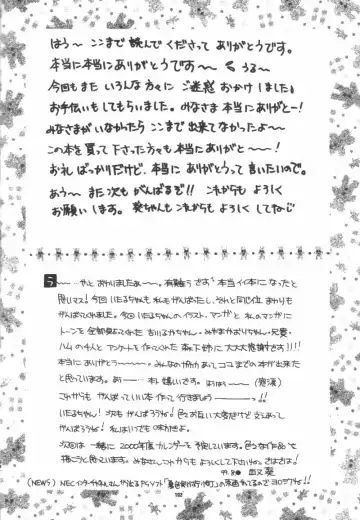 はうー ここまで 読んで くださって ありがとうです。
本当に本当にありがとうです〜〜 く うるー
今回もまた いろんな方々に ご迷惑 おかけしました。
お手伝いもしてもらいました。みなさま 本当にありがとー!
みなさまがいなかったら ここまで 出来てなかったよ〜
この本を買って下さった方々も 本当にありがと〜〜〜!
お礼ばっかりだけど、本当に ありがとうって 言いたいので。
あうー また次も がんばるぞ!! これからも よろしく
お願いします。葵ちゃんも これからも よろしく してね
う〜〜 やっと おわりましたあ〜。有難う さま 本当イイ本になったと
思います! 今回 いたるちゃんも 私も がんばったし、それと同じ位 まわりも
がんばってくれました。今回 いたるちゃんの イラスト、マンガと 私のマンガに
トーンを 全部
ハムの 本当に大大大感謝です!!!
本当にありがとう〜〜〜。みんなの協力あって ココまでの本が出来た
と思っています。あ〜〜 本当 嬉しいです。
これからも がんばって いい本 作って行きましょう〜〜〜!!
いたるちゃん! 次も がんばろうね! 色々お互い大変だけど
がんばろうね! 私はいつでも味方だよ。
次回は 一緒に 2000年度カレンダーを 予定しています。色々な作品で
描こうと思っています。みなさん、これからも よろしくして下さいね。
葵
(NEWS)
102